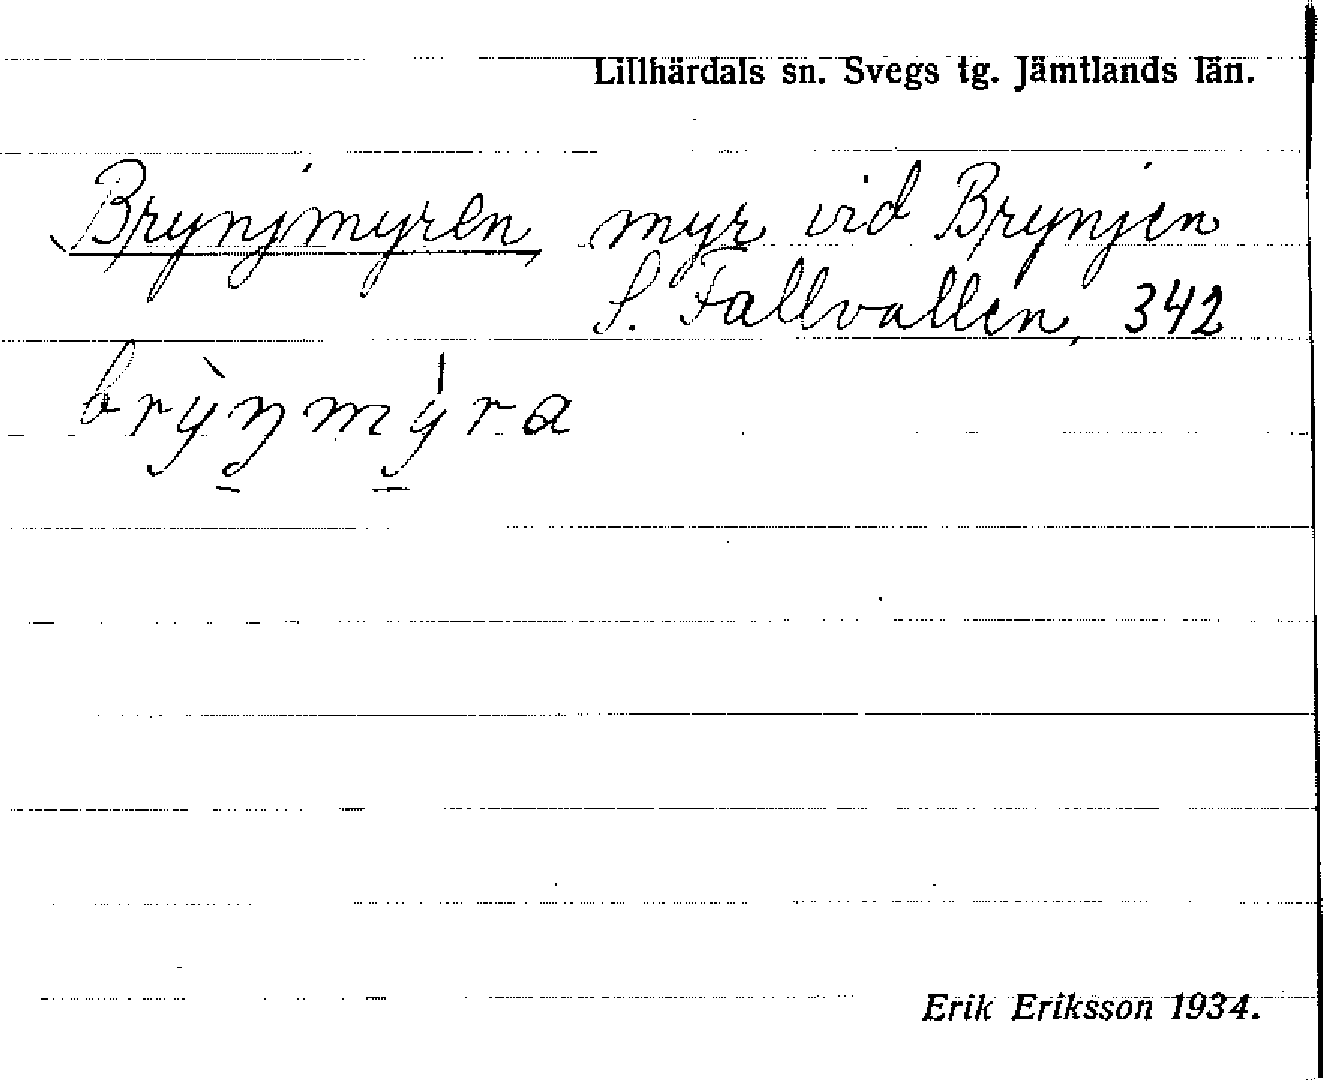 Lillhärdals sn. Svegs tg. Jämtlands län.
Brynjmyren, myr vid Brynjen
S. Fallvallen, 342
brỳŋmýra
Erik Eriksson 1934.